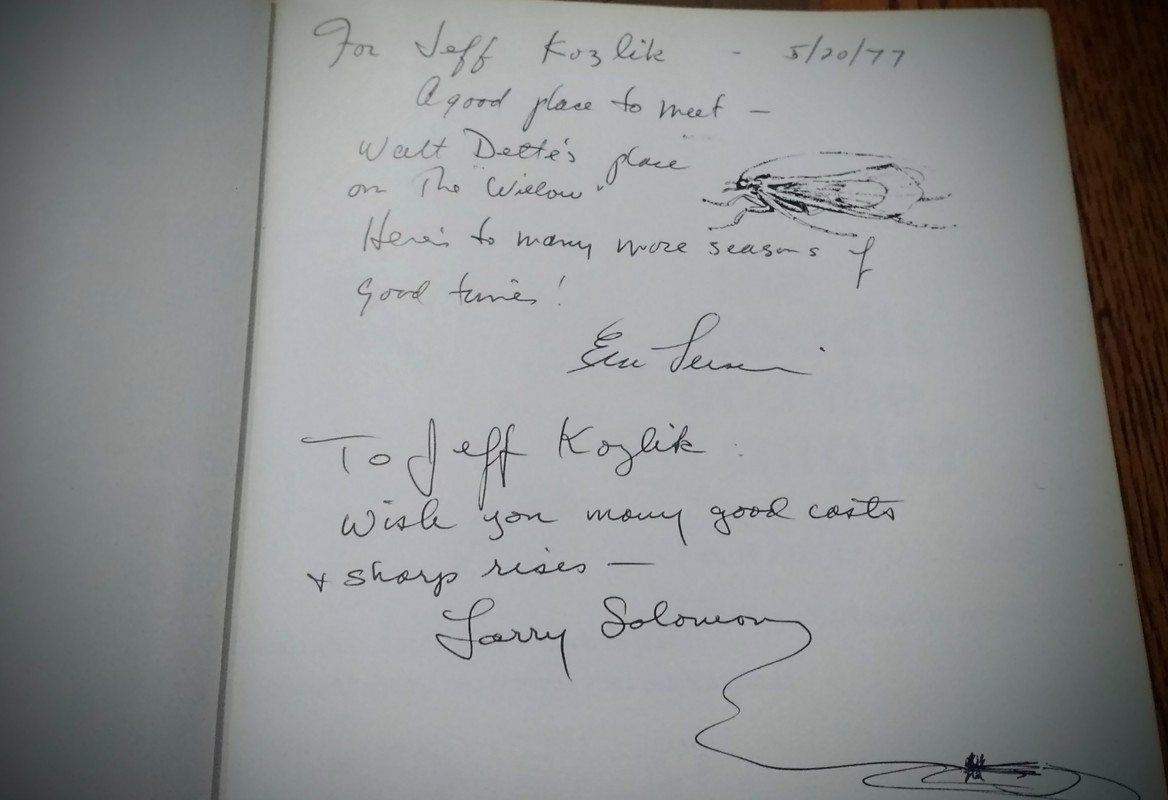 For Jeff Kozlik - 5/20/77
A good place to meet —
Walt Dette's place
on The "Willow"
Here's to many more seasons of
good times!
Eric Leiser
To Jeff Kozlik
Wish you many good casts
+ sharp rises —
Larry Solomon